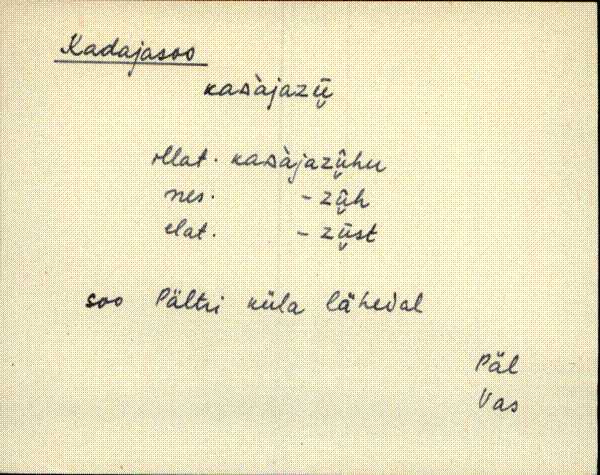 Kadajasoo
kaᴅàjazū̬
illat. kaᴅàjazū̬hu
ines. - zū̬h
elat. - zū̬st
soo Pältri küla lähedal
Päl
Vas